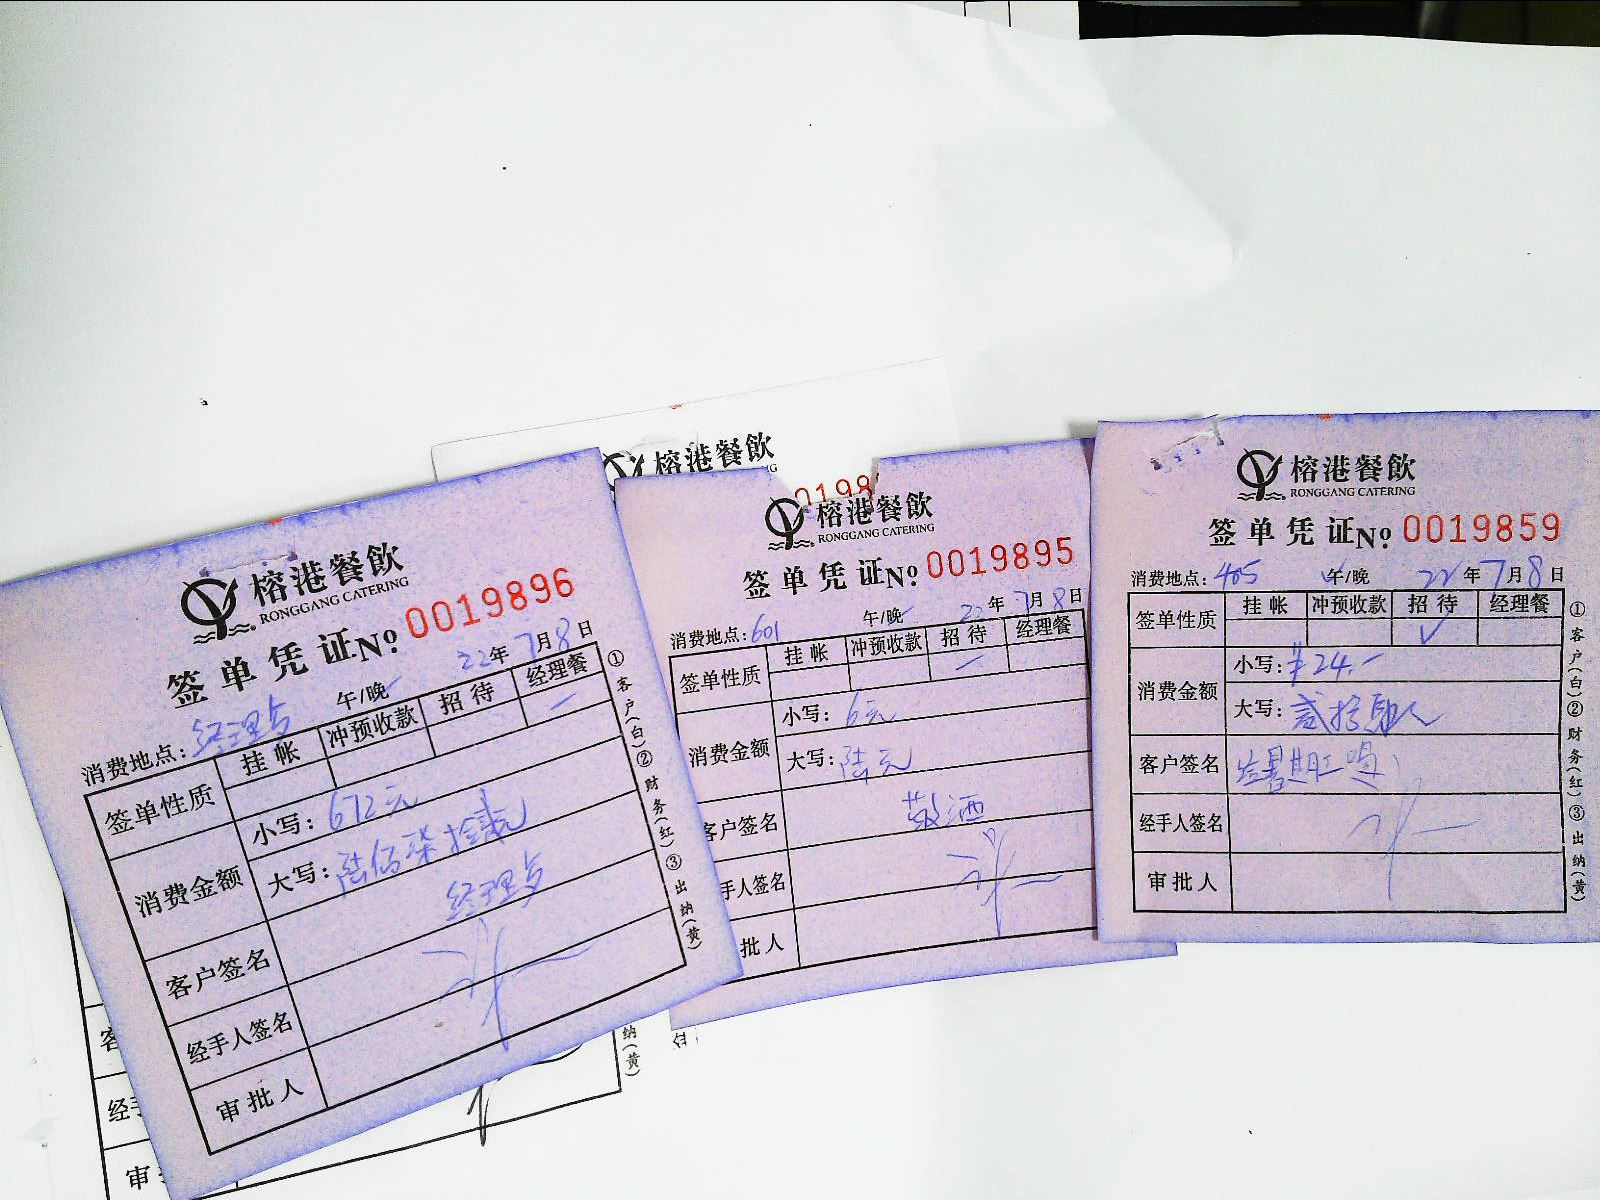 榕港餐飲
RONGGANG CATERING
签单凭证№ 0019896
22年7月8日
消费地点: 经理 午/晚
签单性质 挂帐 冲预收款 招待 经理餐
消费金额
小写: 672元
大写: 陆佰柒拾贰元
客户签名 经理
经手人签名
审批人
①客户(白)②财务(红)③出纳(黄)
榕港餐飲
0198
榕港餐飲
RONGGANG CATERING
签单凭证№ 0019895
消费地点: 601 午/晚 22年7月8日
签单性质 挂帐 冲预收款 招待 经理餐
消费金额
小写: 6元
大写: 陆元
客户签名 敬酒
手人签名
批人
榕港餐飲
RONGGANG CATERING
签单凭证№ 0019859
消费地点: 405 午/晚 22年7月8日
签单性质 挂帐 冲预收款 招待 经理餐
✓
消费金额
小写: ¥24.-
大写: 贰拾肆元
客户签名
经手人签名
审批人
①客户(白)②财务(红)③出纳(黄)
纳(黄)
审